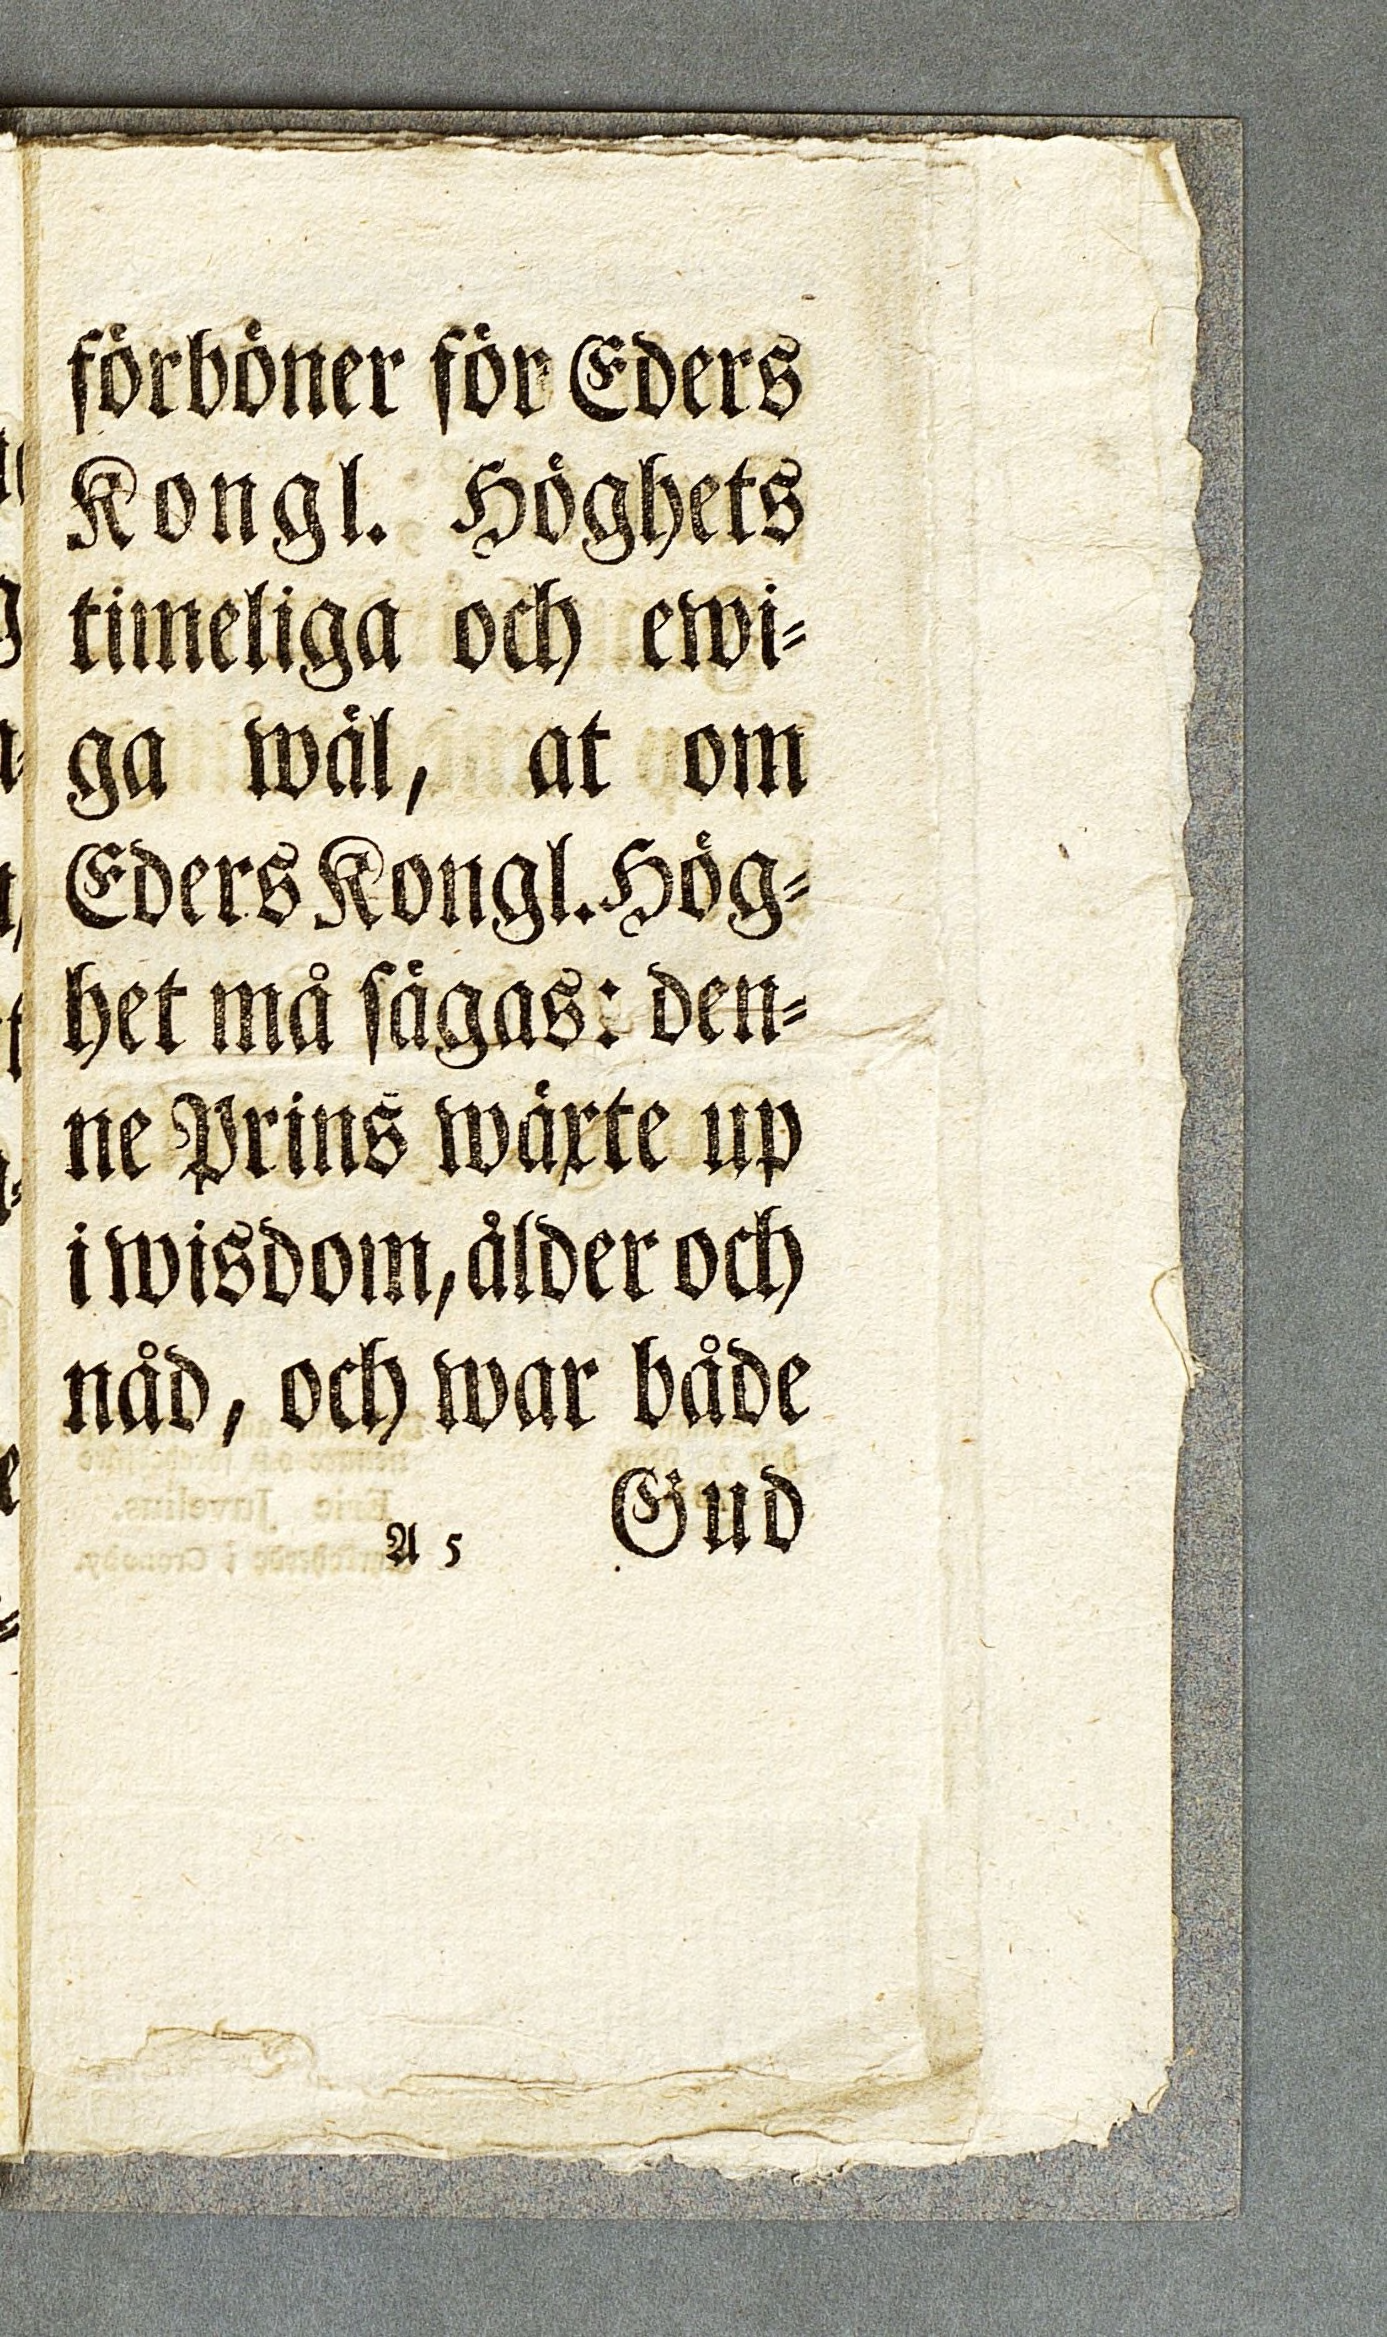 förböner för Eders
Kongl. Höghets
timeliga och ewi⸗
ga wäl, at om
Eders Kongl. Hög⸗
het må sägas: den⸗
ne Prins wäxte up
i wisdom, ålder och
nåd, och war både
Gud
A 5